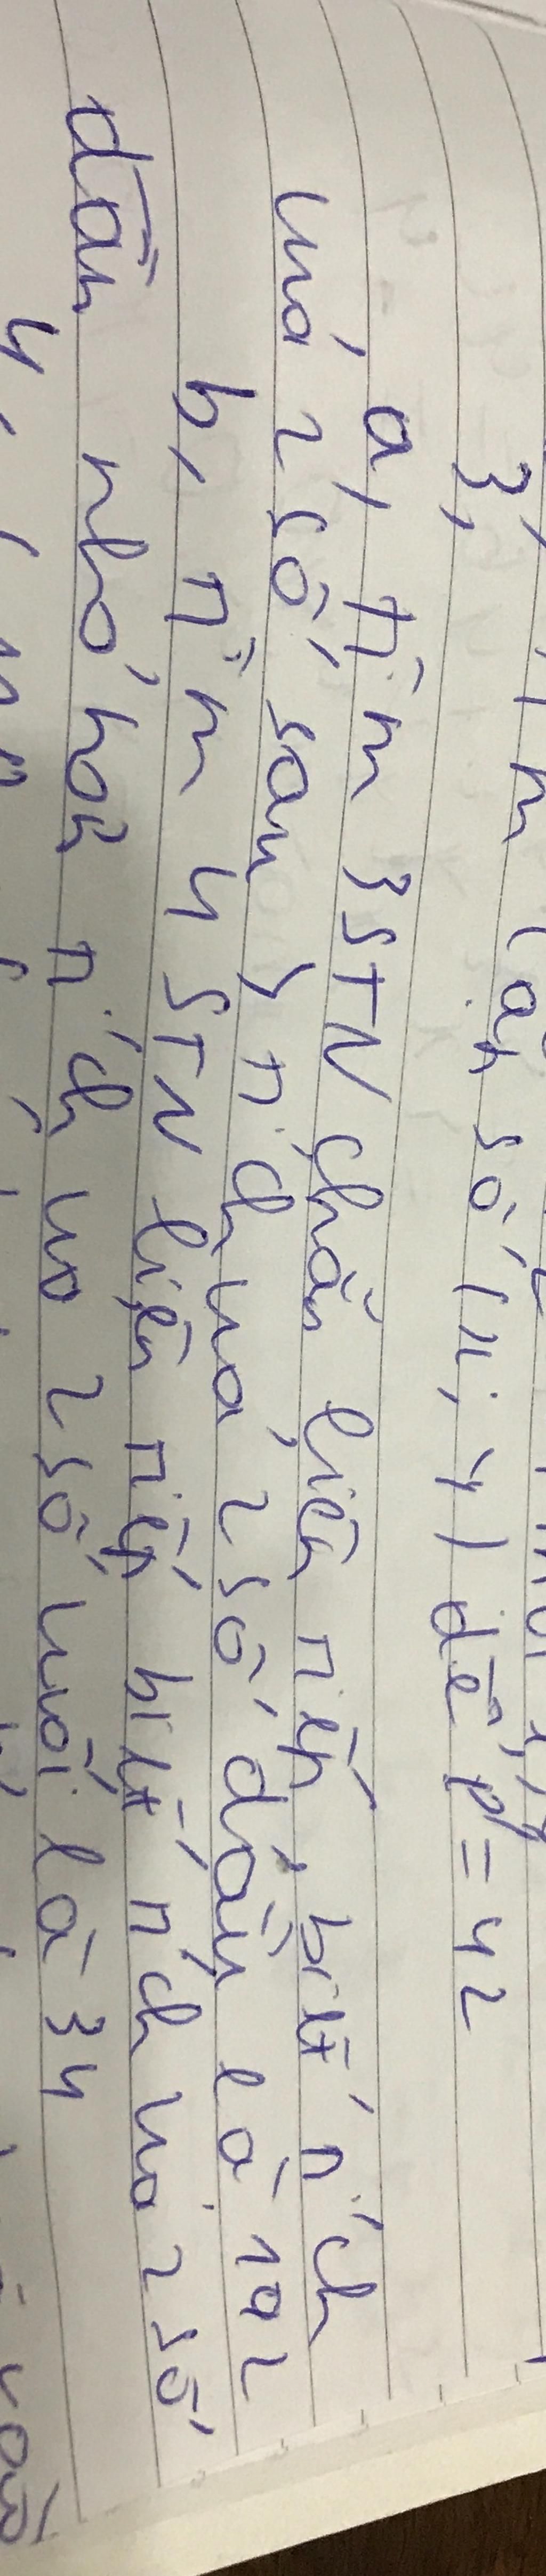 tìm các số (x; y) để P = 42
3,
a, tìm 3 STN chẵn liên tiếp, biết tích
của 2 số sau > tích của 2 số đầu là 192
b, tìm 4 STN liên tiếp biết tích của 2 số
đầu nhỏ hơn tích của 2 số cuối là 34